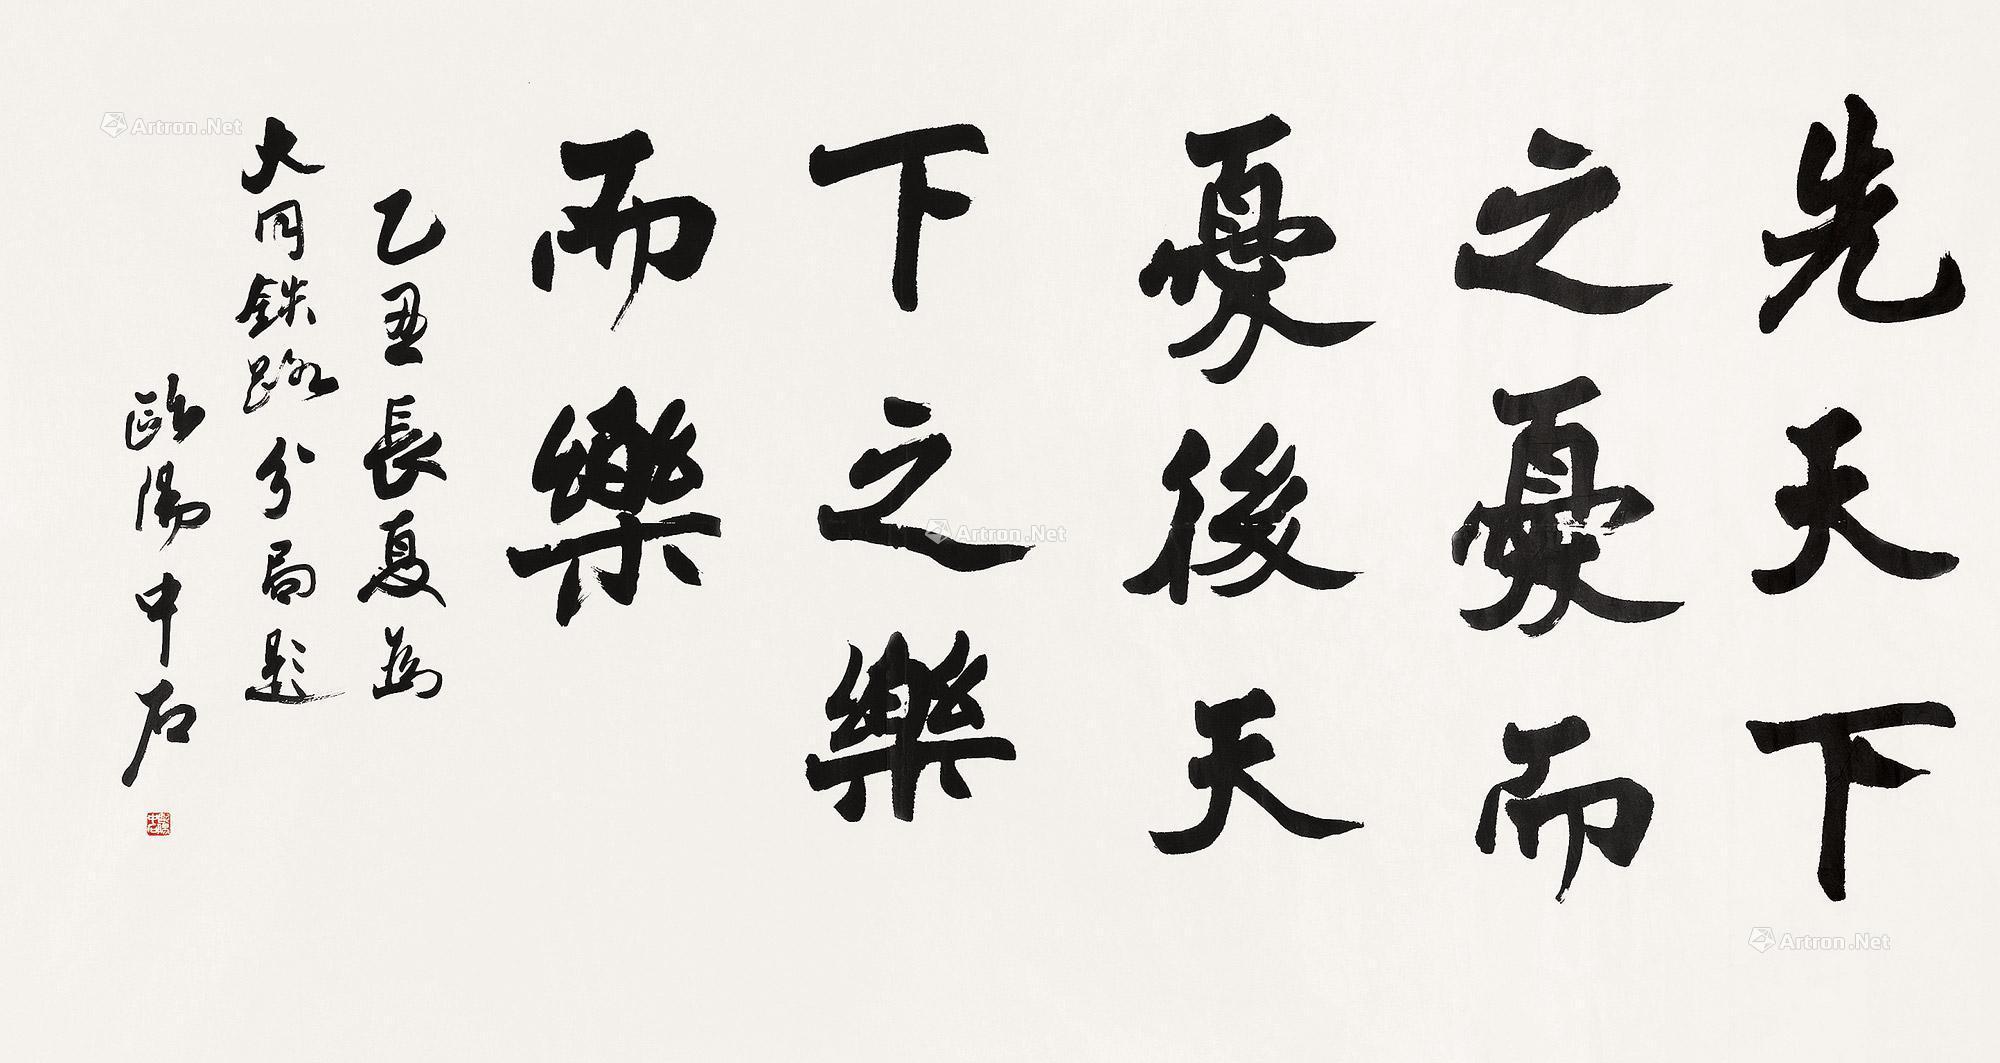 先天下
之憂而
憂後天
下之樂
而樂
乙丑長夏為
大同鉄路分局題
歐陽中石
Artron.Net
Artron.Net
Artron.Net